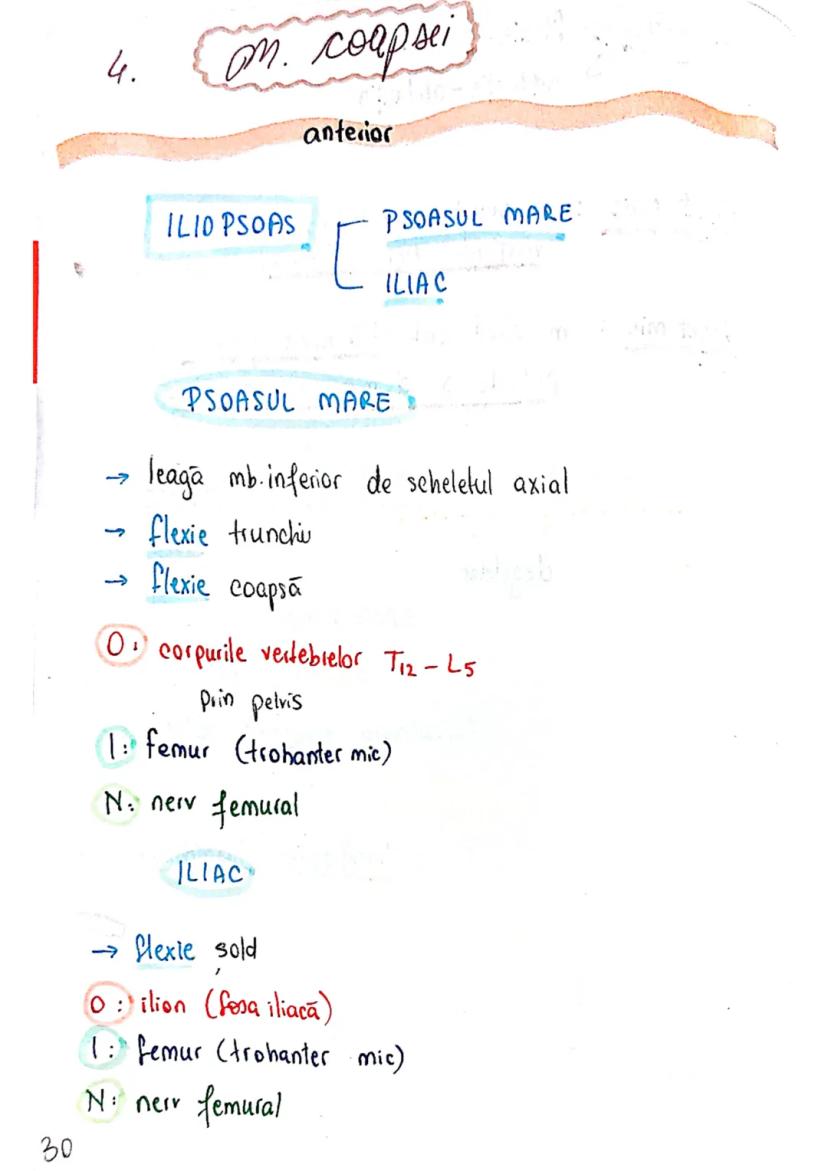 4. m. coapsei
anterior
ILIOPSOAS
PSOASUL MARE
ILIAC
PSOASUL MARE
→ leagă mb. inferior de scheletul axial
→ flexie trunchi
→ flexie coapsă
O: corpurile vertebrelor T12 - L5
prin pelvis
I: femur (trohanter mic)
N: nerv femural
ILIAC
→ flexie șold
O: ilion (fosa iliacă)
I: femur (trohanter mic)
N: nerv femural
30